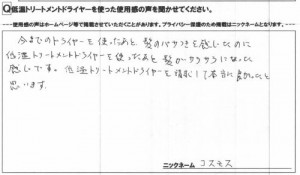 Q低温トリートメントドライヤーを使った使用感の声を聞かせてください。
使用感の声はホームページ等で掲載させていただくことがあります。プライバシー保護のため掲載はニックネームとなります。
今までのドライヤーを使ったあと、髪のパサつきを感じたのに
低温トリートメントドライヤーを使ったあと髪がサラサラになった
感じです。低温トリートメントドライヤーを購入して本当に良かったと
思います。
ニックネーム コスモス